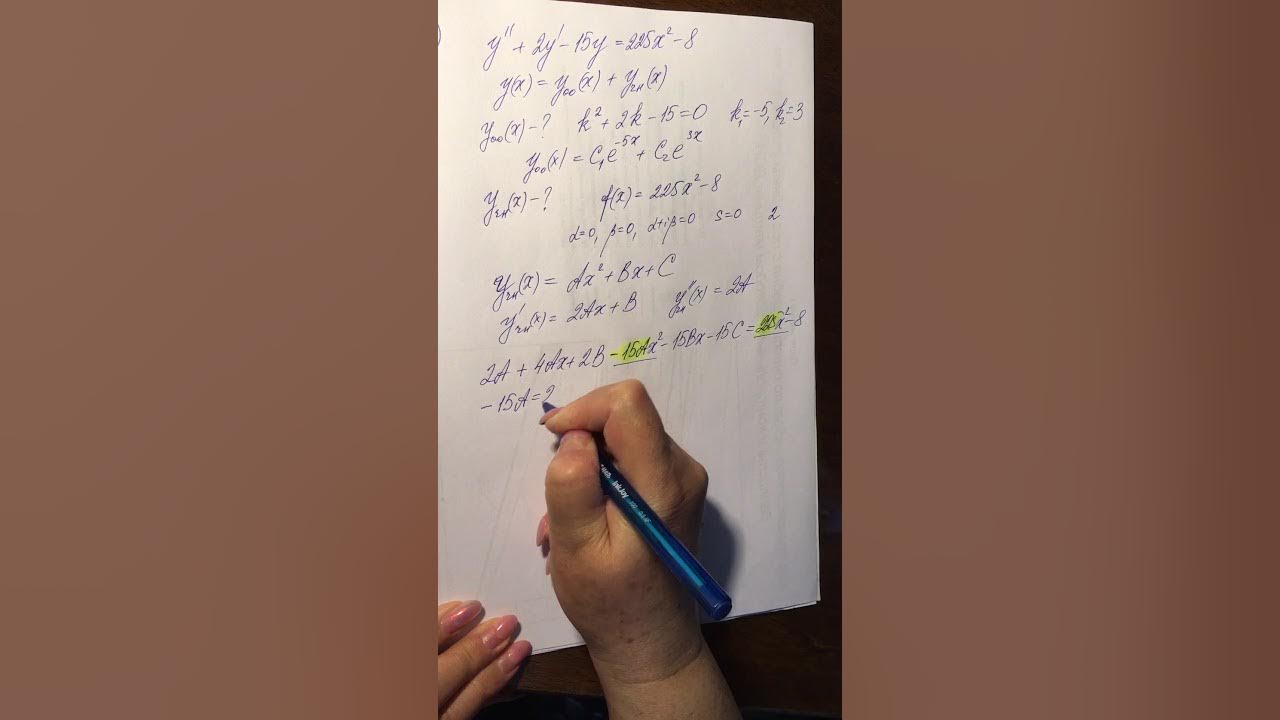 y'' + 2y' - 15y = 225x² - 8
y(x) = y₀₀(x) + yчн(x)
y₀₀(x) - ? k² + 2k - 15 = 0 k₁ = -5, k₂ = 3
y₀₀(x) = C₁e^-5x + C₂e^3x
yчн(x) - ? f(x) = 225x² - 8
α=0, β=0, α+iβ=0 s=0 2
yчн(x) = Ax² + Bx + C
y'чн(x) = 2Ax + B y''чн(x) = 2A
2A + 4Ax + 2B - 15Ax² - 15Bx - 15C = 225x² - 8
- 15A = 2